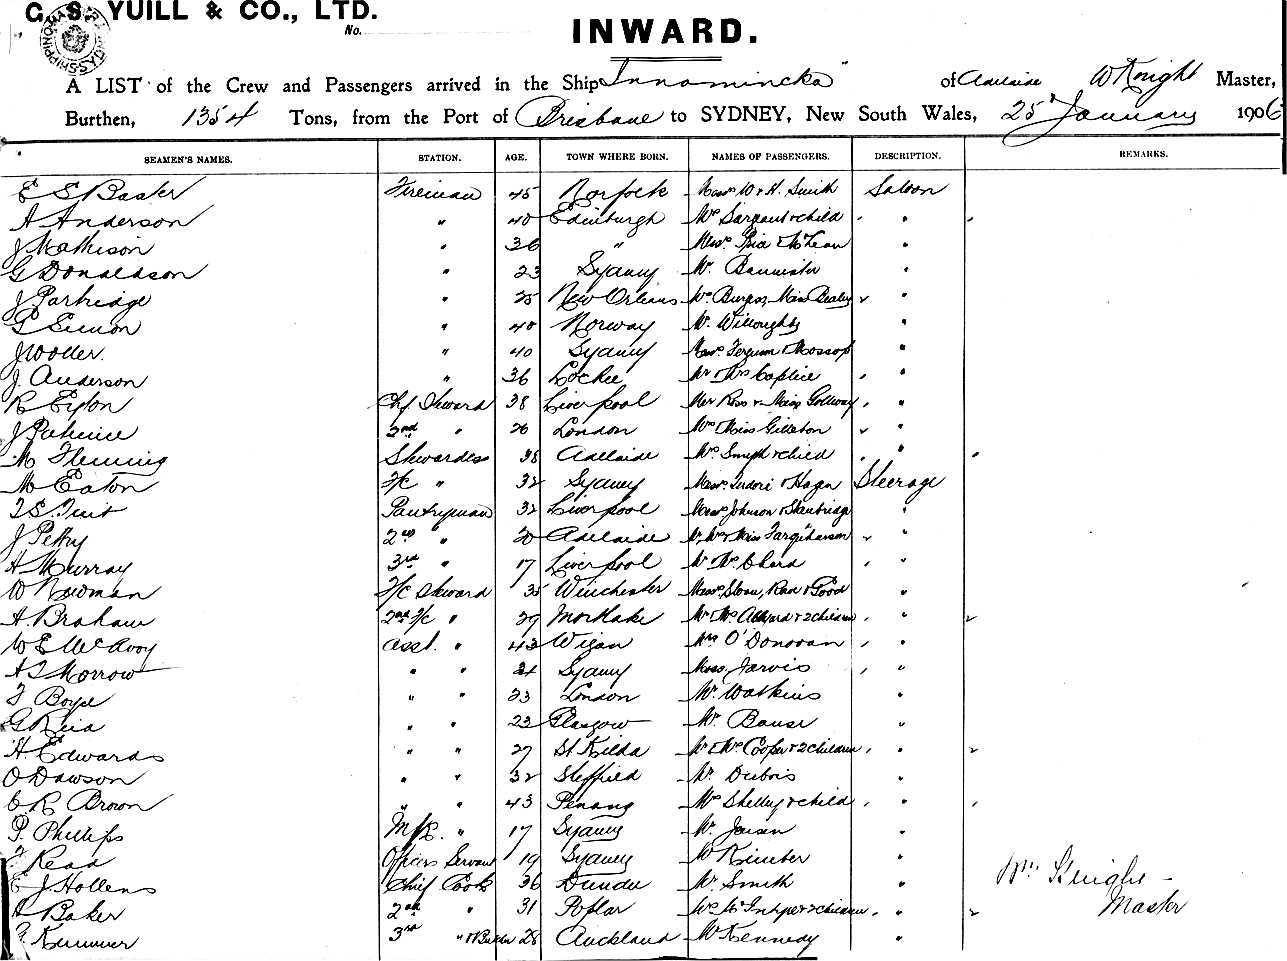 G. S. YUILL & CO., LTD.
No.
INWARD.
A LIST of the Crew and Passengers arrived in the Ship "Innamincka" of Adelaide W Knight Master,
Burthen, 1354 Tons, from the Port of Brisbane to SYDNEY, New South Wales, 25 January 1906
SEAMEN'S NAMES. STATION. AGE. TOWN WHERE BORN. NAMES OF PASSENGERS. DESCRIPTION. REMARKS.
E S Baster Fireman 45 Norfolk Messrs W & H. Smith Saloon
A Anderson " 40 Edinburgh Mrs Sargant & child "
J Mathison " 36 " Messrs McLean "
G Donaldson " 23 Sydney Mr. Bannister "
J Partridge " 25 New Orleans Mrs Miss "
Simon " 40 Norway Mr. Willoughby "
J " 40 Sydney Messrs & Mossop "
J. Anderson " 36 Mr & Mrs Caplice "
R Chf Steward 38 Liverpool Ross & Miss "
J Patience 2nd " 26 London Mrs Miss "
M Fleming Stewardess 38 Adelaide Mrs Smyth & child "
M Eaton F/C " 32 Sydney Messrs & Hagan Steerage
Pantryman 32 Liverpool Messrs Johnson & Stanbridge "
J Petty 2nd " 20 Adelaide Mr, Mrs & Miss Farquharson "
A Murray 3rd " 17 Liverpool Mr Mrs "
W Newman F/C Steward 35 Winchester Messrs Sloan, & Good "
A. Braham 2nd F/C " 29 Mortlake Mr Mrs & 2 children "
W E McAvoy asst. " 43 Wigan Mrs O'Donovan "
A Morrow " " Sydney Miss Jarvis "
Boyd " " 23 London Mr. Watkins "
G Reid " " 22 Glasgow Mr. "
H. Edwards " " 27 St Kilda Mr & Mrs Cooper & 2 children "
O Dawson " " 32 Sheffield Mr. Dubois "
C R Brown " " 43 Penang Mrs Shelley & child "
P. Phillips " 17 Sydney Mr. Jensen "
Read Officers Servant 19 Sydney Mr Kimber "
E J Hollens Chief Cook 36 Dundee Mr. Smith "
Baker 2nd " 31 Poplar Mrs & 2 children "
3rd " & 28 Auckland Mr Kennedy "
Wm Knight
Master